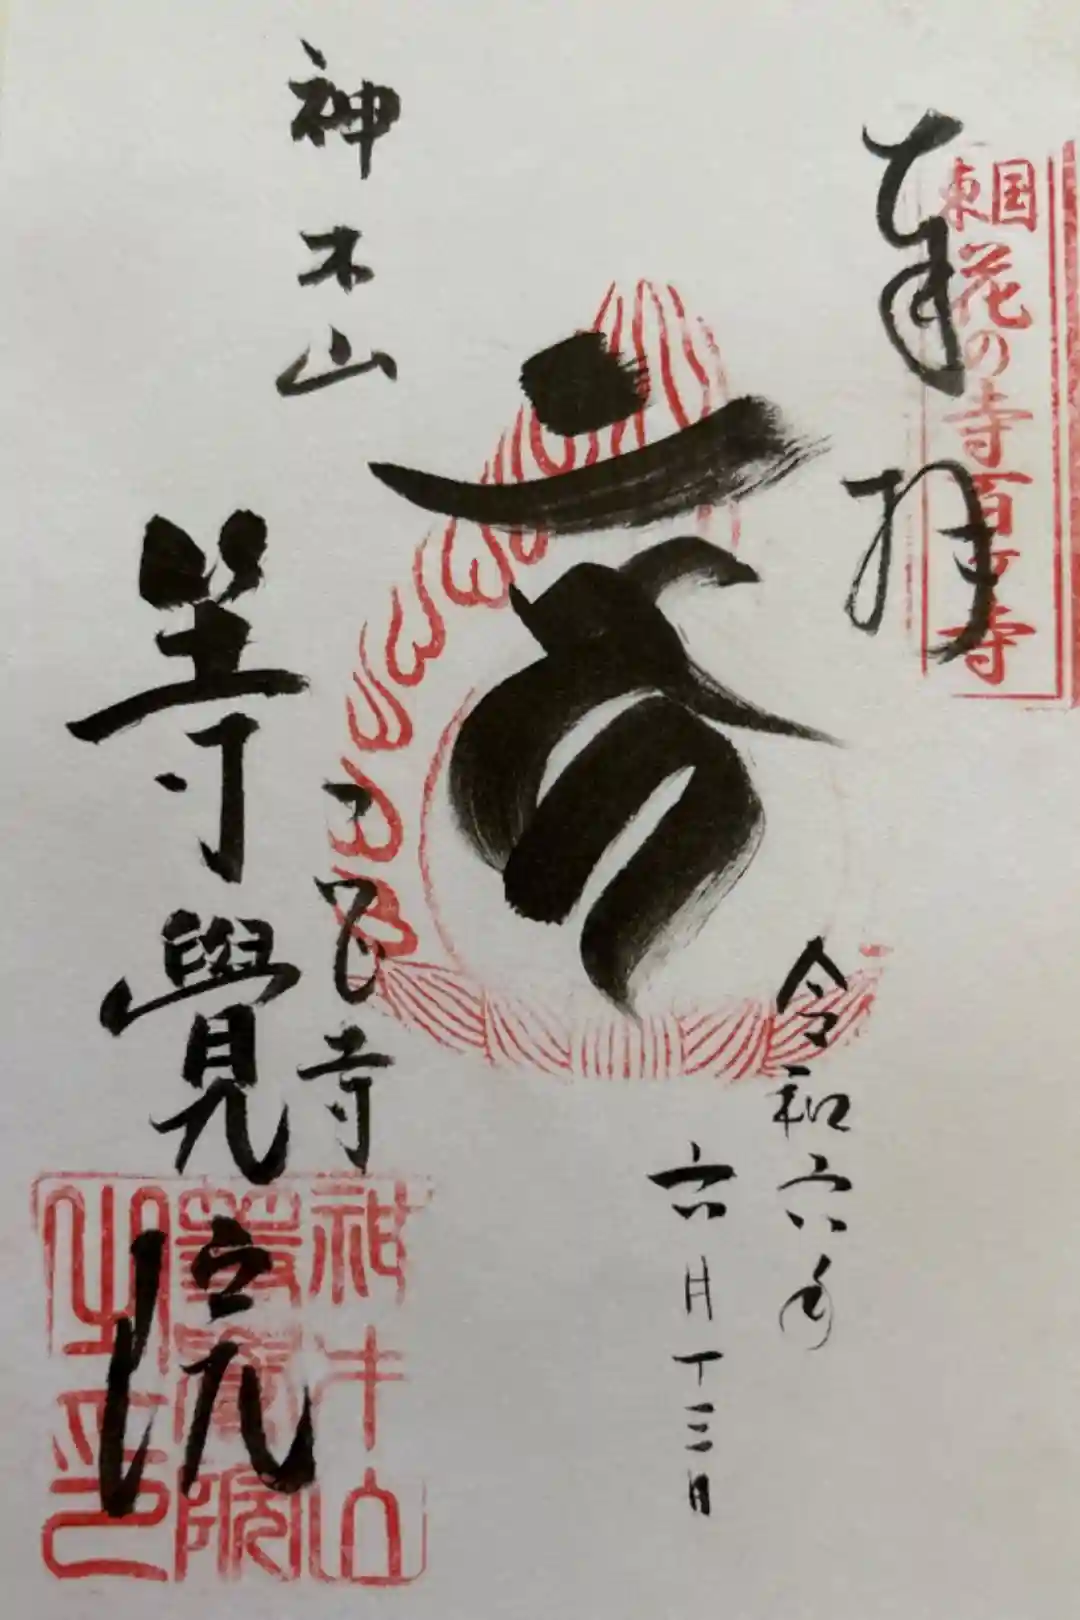 奉拝
東国花の寺百ヶ寺
令和六年
六月十三日
神木山
つつじ寺
等覺院
神木山
等覺院
之印